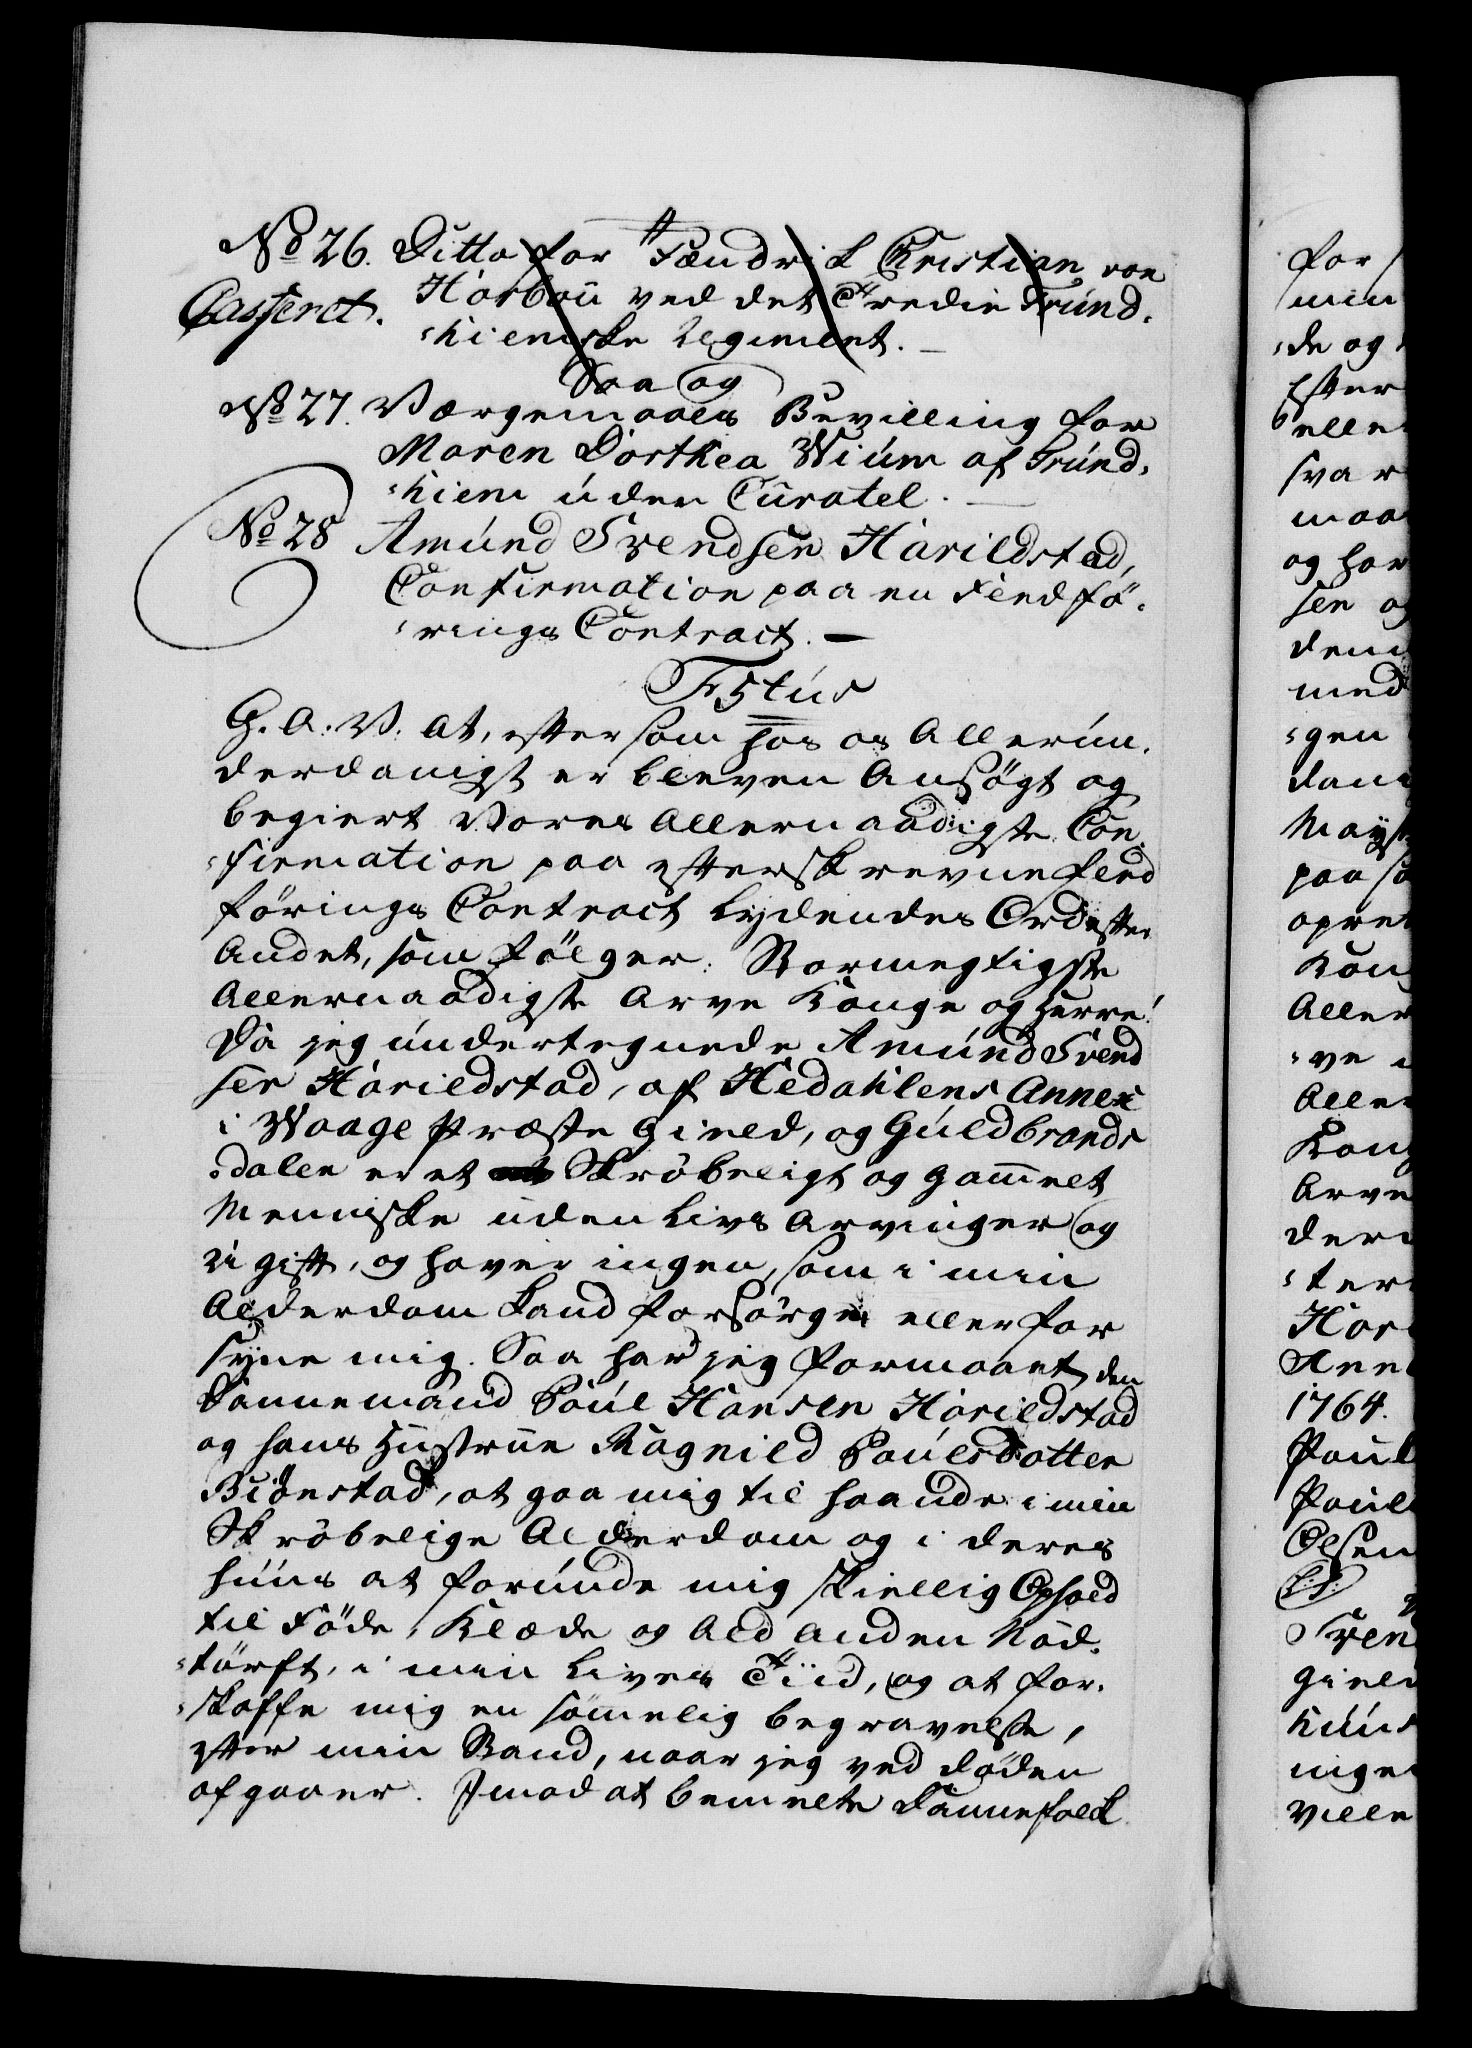 No 26. Ditto for Fændrik Christian von
Casseret. Harbou ved det Tredie Trund-
-hiemske Regiment. —
Saa og
No 27. Værgemaals Bevilling for
Maren Dorthea Wium af Trund-
-hiem uden Curatel. —
No 28 Amund Svendsen Harildstad,
Confirmation paa en Fledfö-
-rings Contract. —
Fr 5tus
G. A. V. At, eftersom hos os Allerun-
derdanigst er bleven Ansögt og
begiert Vores Allernaadigste Con-
-firmation paa efterskrevne Fled
förings Contract Lydendes Ord efter
Andet, som fölger: Stormegtigste
Allernaadigste Arve Konge og Herre!
Da jeg undertegnede Amund Svend
sen Harildstad, af Hedahlens Annex
i Waage Præste Gield, og Guldbrands
-dalen er et Skröbeligt og gammelt
Menniske uden Livs Arvinger og
Ugift, og haver ingen, som i min
Alderdom kand forsörge eller for
syne mig. Saa har jeg formaaet den
Dannemand Poul Hansen Harildstad
og hans Hustrue Ragnild Poulsdotter
Biönstad, at gaa mig til haande i min
Skröbelige Alderdom og i deres
Huus at forunde mig skiellig Ophold
til Föde, Klæde og Ald anden Nöd-
-törft, i min Lives Tiid, og at for-
-skaffe mig en sömmelig begravelse,
efter min Stand, naar jeg ved döden
afgaaer. Imod at bemelte Dannefolck
for
min
-de og
Efter
elle
svar
maa
og har
sen og
denn
med
-gen
dan
Mays
paa
opret
Kon
Aller
-ve
Aller
Kong
Arve
der
-ter
Har
Ann
1764.
Poul
Poul
Olsen
(L.S.)
Sven
Giel
Huus
nige
ville